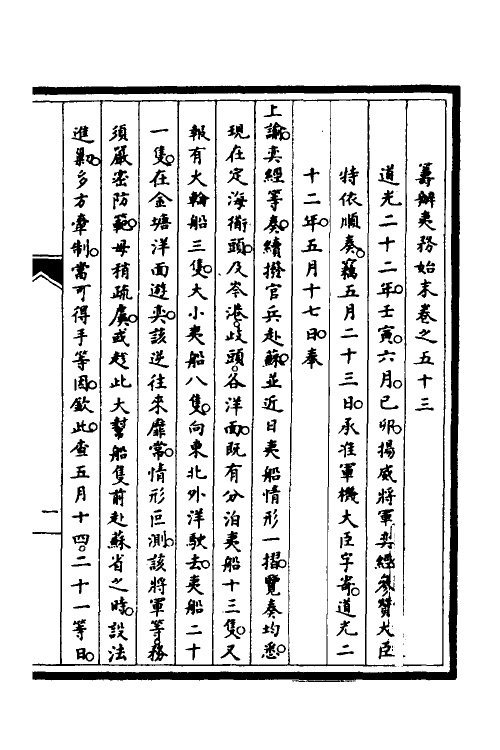 籌辦夷務始末卷之五十三
道光二十二年壬寅六月己卯揚威將軍奕經參贊大臣
特依順奏竊五月二十三日承准軍機大臣字寄道光二
十二年五月十七日奉
上諭奕經等奏續撥官兵赴蘇並近日夷船情形一摺覽奏均悉
現在定海衜頭及岑港岐頭各洋面既有分泊夷船十三隻又
報有火輪船三隻大小夷船八隻向東北外洋駛去夷船二十
一隻在金塘洋面遊奕該逆往來靡常情形叵測該將軍等務
須嚴密防範毋稍疏虞或趁此大幫船隻前赴蘇省之時設法
進勦多方牽制當可得手等因欽此查五月十四二十一等日
一